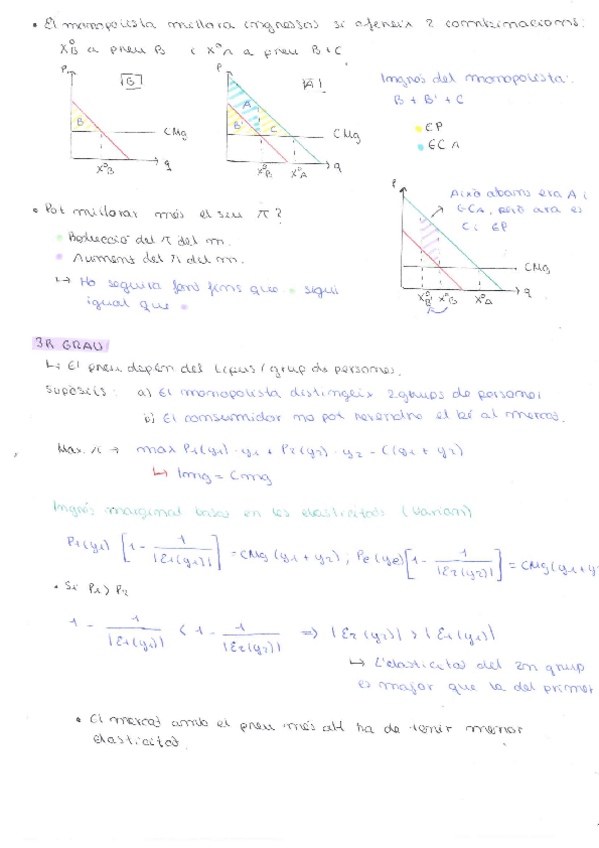 • El monopolista millora ingressos si ofereix 2 combinacions:
X⁰B a preu B i X⁰A a preu B+C
P
B
B
CMg
X⁰B
q
P
A
A
B'
C
CMg
X⁰B X⁰A
q
Ingrés del monopolista:
B + B' + C
• EP
• EC A
• Pot millorar més el seu π?
• Reducció del π del m.
• Augment del π del m.
↳ Ho seguirà fent fins que • sigui
igual que •
P
Això abans era A i
ECA, però ara és
C i EP
CMg
X⁰B' X⁰B X⁰A
q
3R GRAU
↳ El preu depèn del tipus/grup de persones.
Supòsits: a) El monopolista distingeix 2 grups de persones
b) El consumidor no pot revendre el bé al mercat.
Max. π → max P1(y1)·y1 + P2(y2)·y2 - C(y1 + y2)
↳ Img = Cmg
Ingrés marginal basat en les elasticitats (Varian)
P1(y1) [1 - 1/|ε1(y1)|] = CMg (y1 + y2), P2(y2) [1 - 1/|ε2(y2)|] = CMg(y1+y
• Si P1 > P2
1 - 1/|ε1(y1)| < 1 - 1/|ε2(y2)| ⇒ |ε2(y2)| > |ε1(y1)|
↳ L'elasticitat del 2n grup
és major que la del primer
• El mercat amb el preu més alt ha de tenir menor
elasticitat.